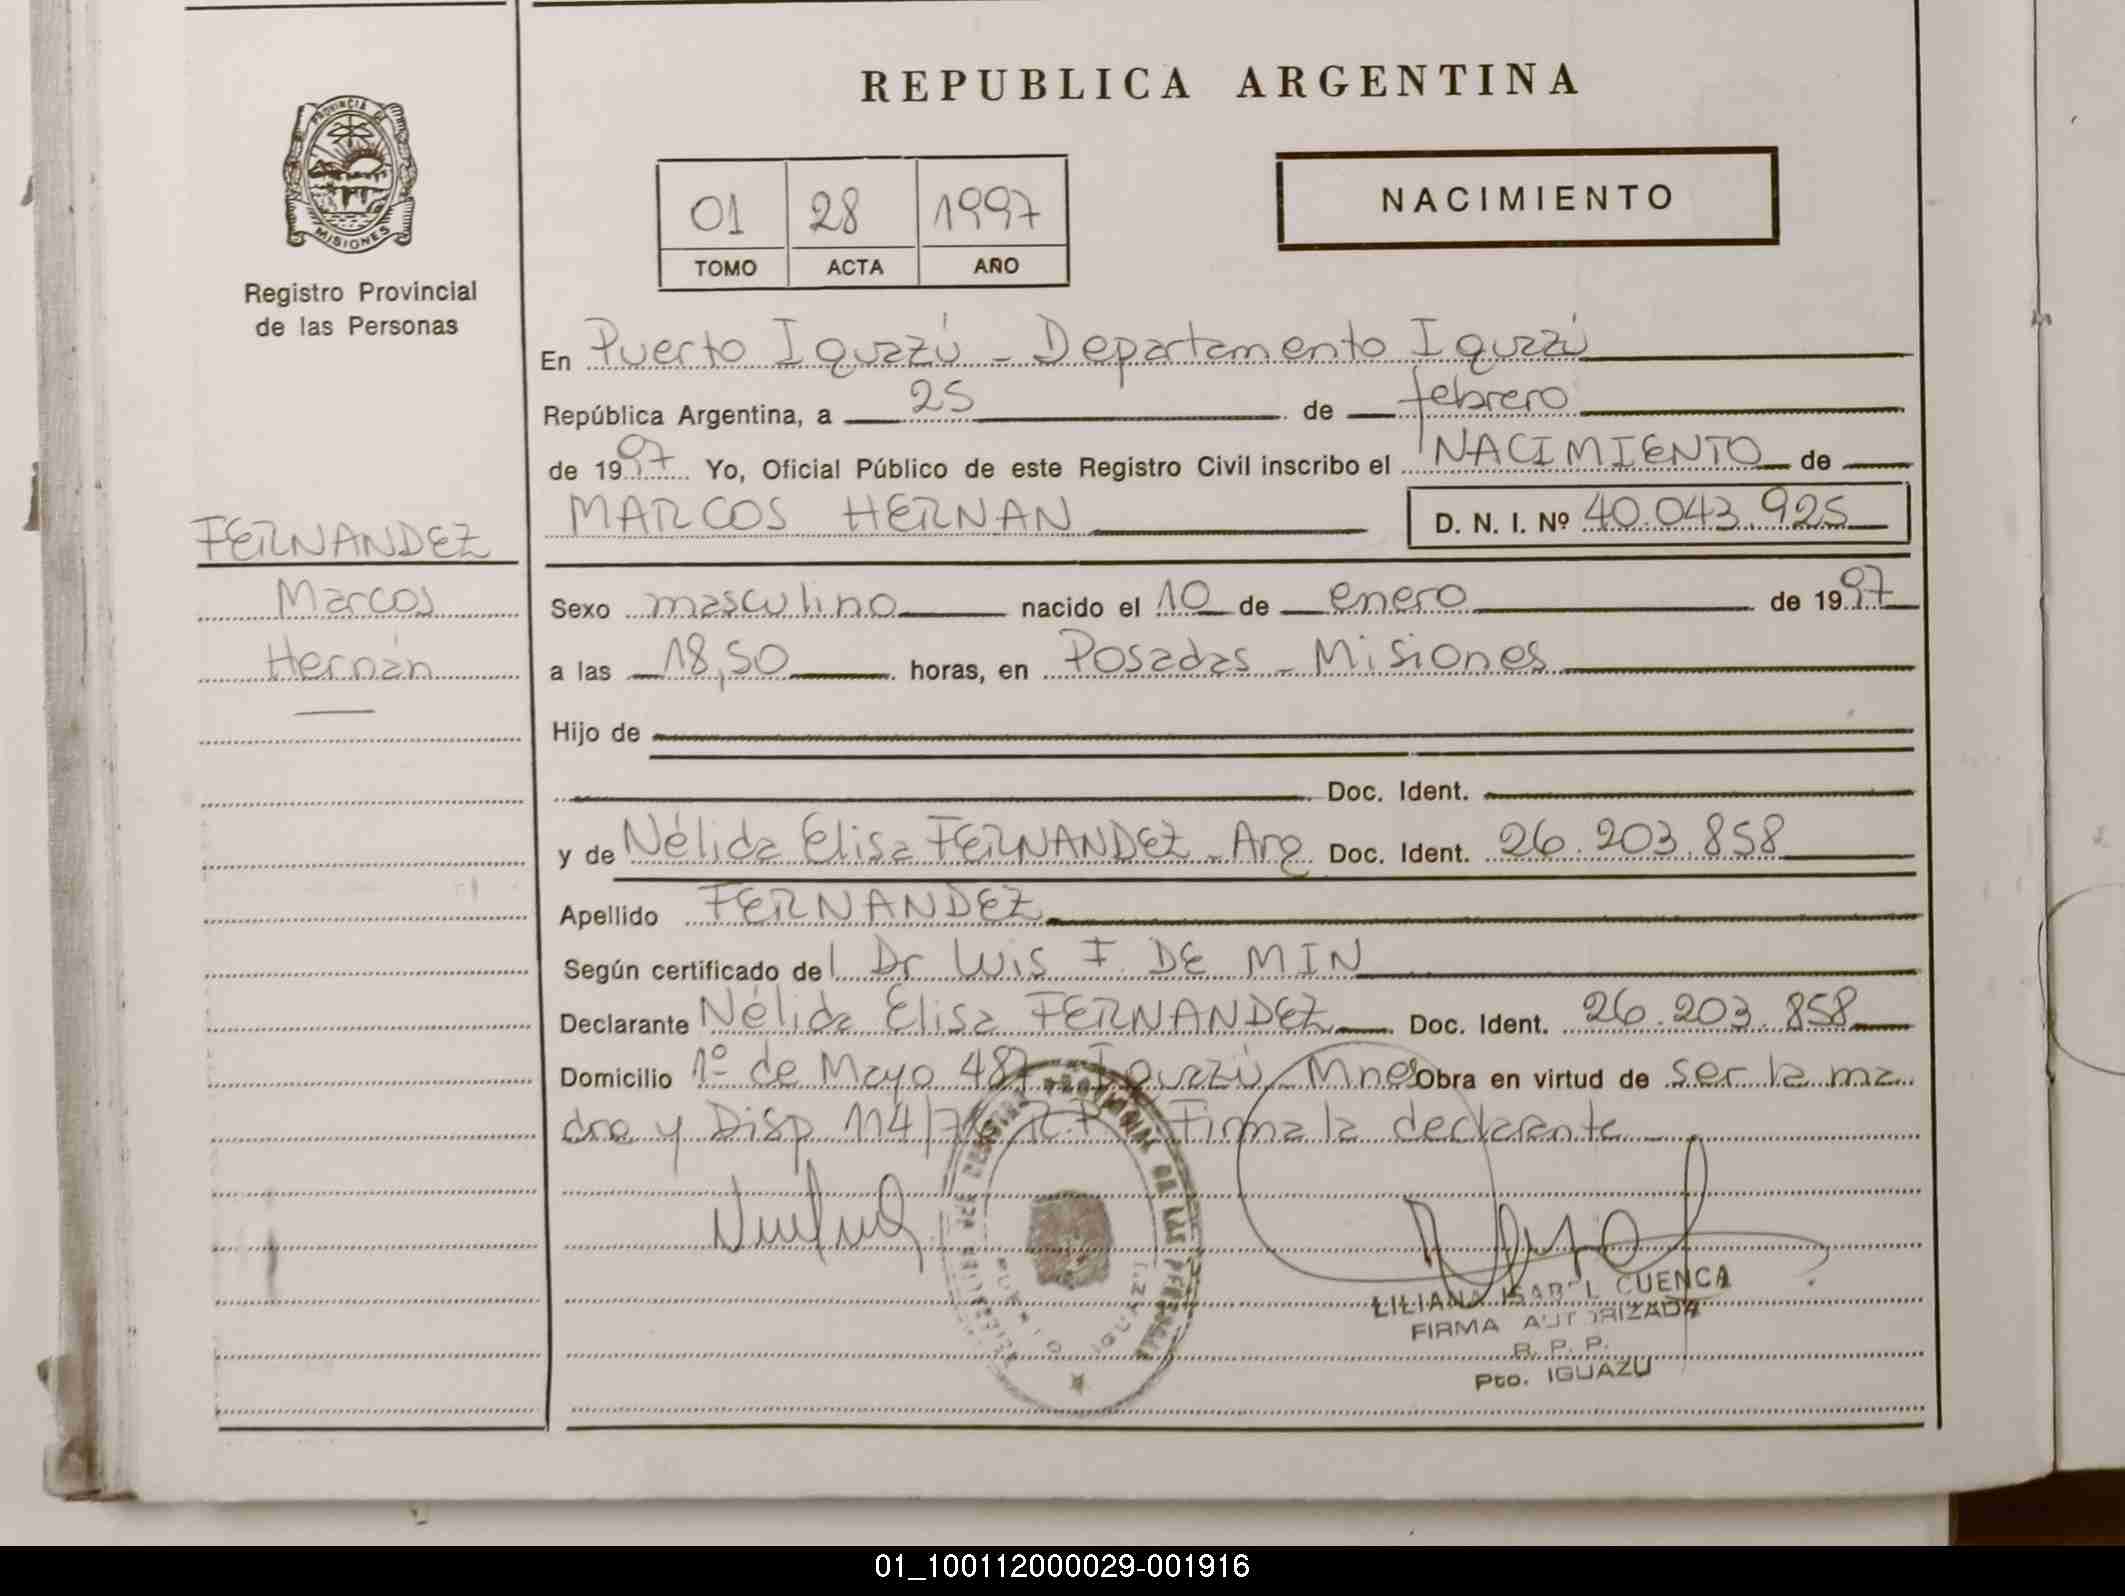 REPUBLICA ARGENTINA
PROVINCIA DE
MISIONES
Registro Provincial
de las Personas
01 28 1997
TOMO ACTA AÑO
NACIMIENTO
En Puerto Iguazú - Departamento Iguazú
República Argentina, a 25 de febrero
de 1997 Yo, Oficial Público de este Registro Civil inscribo el NACIMIENTO de
MARCOS HERNAN D. N. I. Nº 40.043.925
FERNANDEZ
Marcos
Hernán
Sexo masculino nacido el 10 de enero de 1997
a las 18,50 horas, en Posadas - Misiones
Hijo de
Doc. Ident.
y de Nélida Elisa FERNANDEZ - Arg Doc. Ident. 26.203.858
Apellido FERNANDEZ
Según certificado del Dr Luis F. DE MIN
Declarante Nélida Elisa FERNANDEZ Doc. Ident. 26.203.858
Domicilio 1º de Mayo Iguazú Mnes Obra en virtud de ser la ma
dre y Disp 114/ Firma la declarante
REGISTRO PROVINCIAL DE LAS PERSONAS
PUERTO IGUAZU
LILIANA ISABEL CUENCA
FIRMA AUTORIZADA
R. P. P.
Pto. IGUAZU
01_100112000029-001916